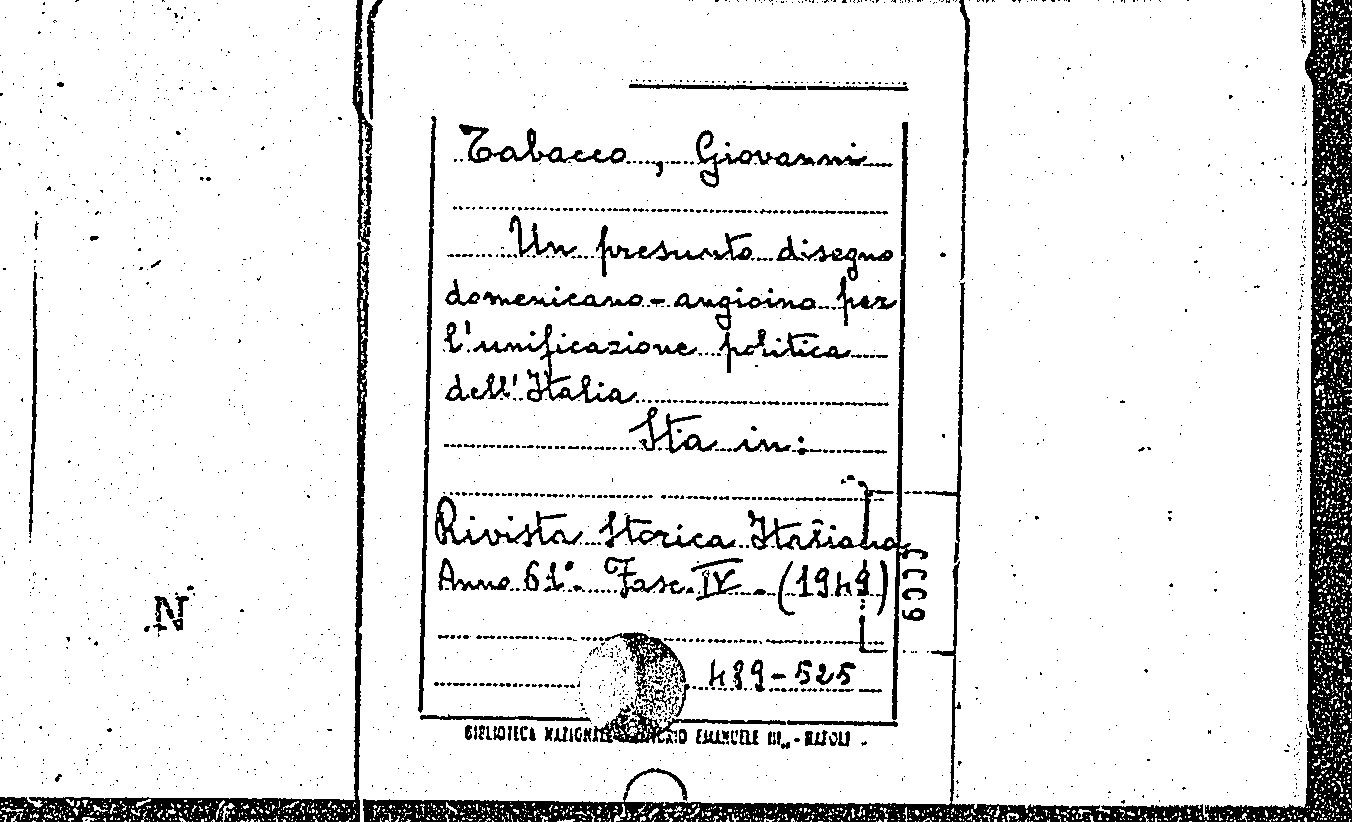 Tabacco, Giovanni
Un presunto disegno
domenicano-angioino per
l'unificazione politica
dell'Italia
Sta in:
Rivista Storica Italiana
Anno 61°. Fasc. IV. (1949)
489-525
BIBLIOTECA NAZIONALE EMANUELE III,, - NAPOLI
N.